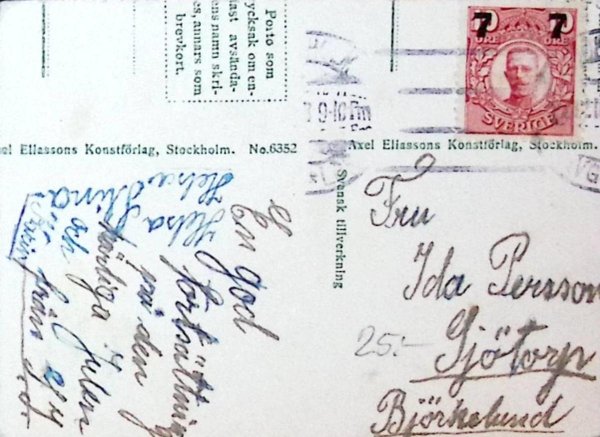 Porto som
trycksak om en-
dast avsända-
rens namn skri-
ves, annars som
brevkort.
7 7
SVERIGE
9-10 Fm
Axel Eliassons Konstförlag, Stockholm. No.6352
Axel Eliassons Konstförlag, Stockholm.
Svensk tillverkning
Fru
Ida Persson
Sjötorp
Björkelund
25:-
En god
fortsättning
på den
härliga Julen
och
Helsa
Helsa Stina
från